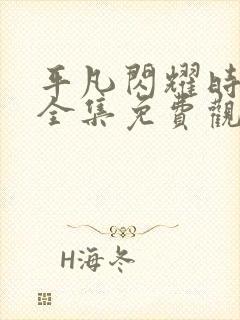 平凡閃耀時
全集免費觀
H海冬